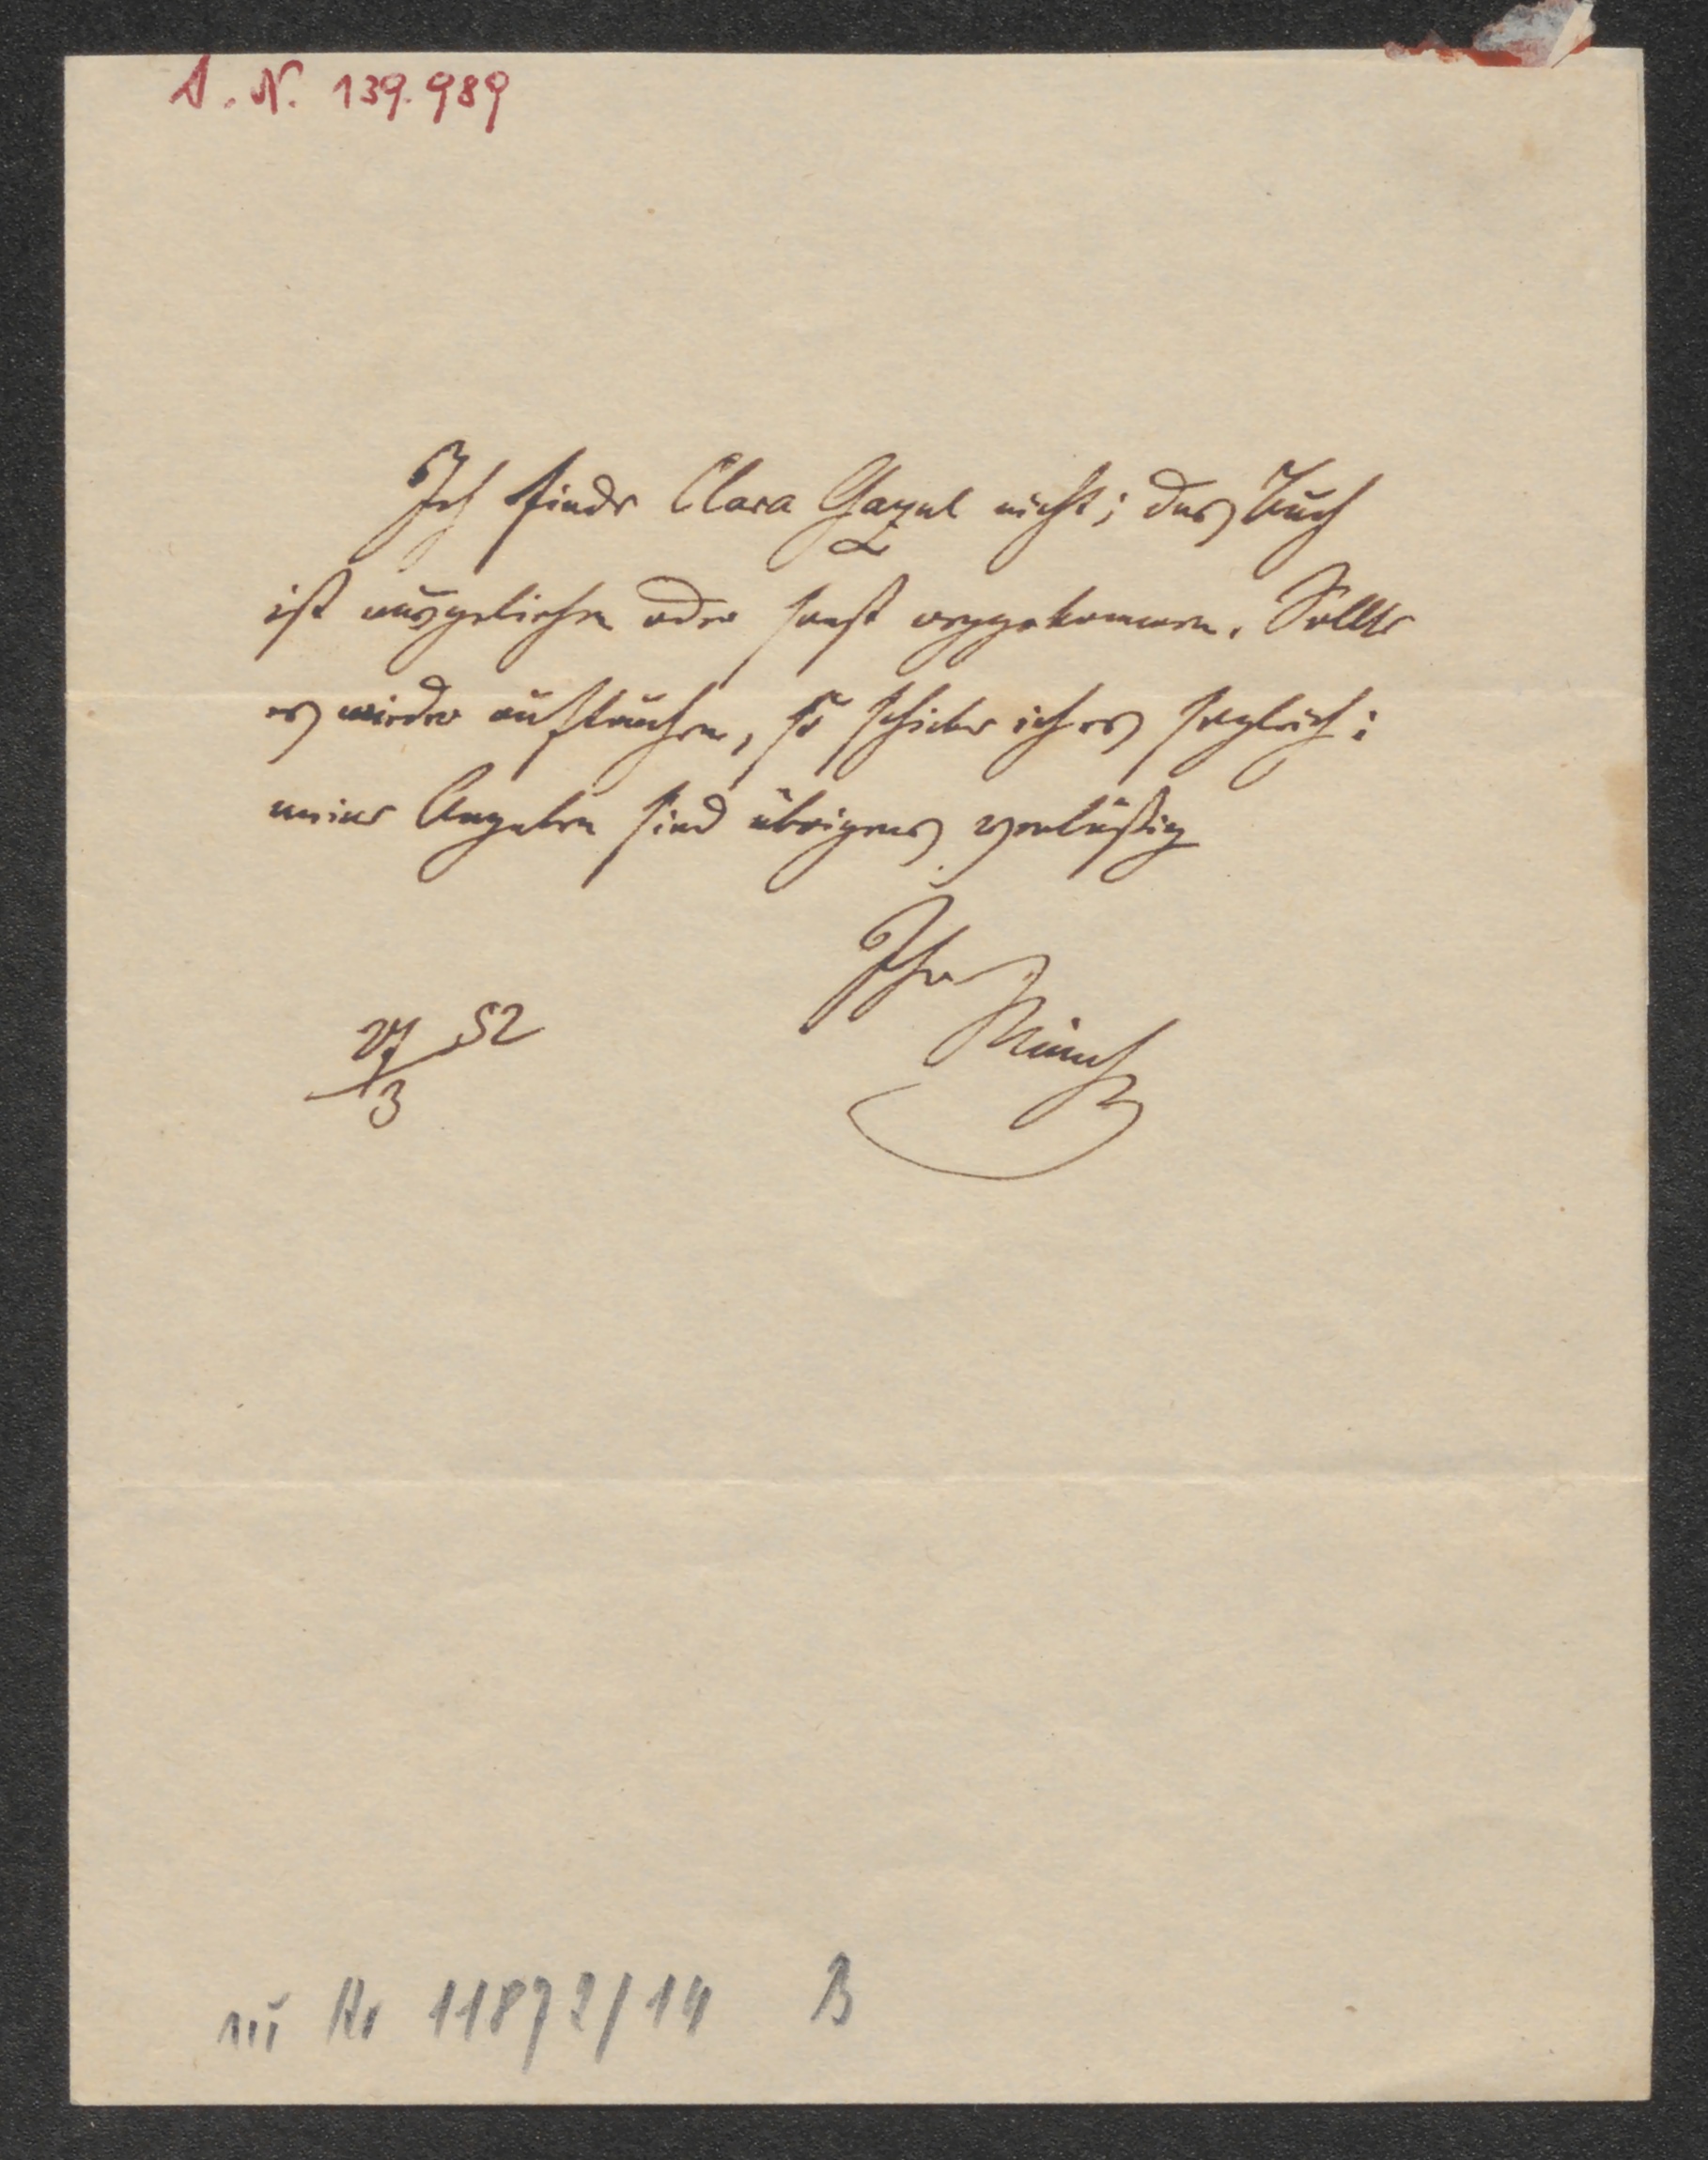 A. N. 139.989
Ich finde Clara Gazul nicht; das Buch
ist ausgeliehen oder sonst weggekommen. Sollte
es wieder auftauchen, so schicke ich es sogleich;
meine Angaben sind übrigens verläßig
Ihr
Münch
27/3 52
Nr 11872/14 B